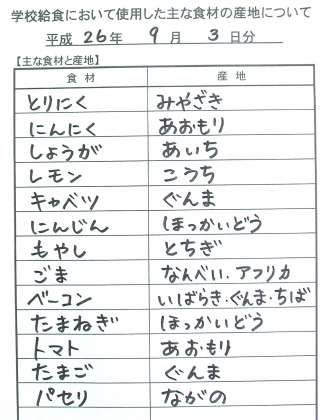 学校給食において使用した主な食材の産地について
平成 26年 9月 3日分
【主な食材と産地】
食材 産地
とりにく みやざき
にんにく あおもり
しょうが あいち
レモン こうち
キャベツ ぐんま
にんじん ほっかいどう
もやし とちぎ
ごま なんべい.アフリカ
ベーコン いばらき・ぐんま・ちば
たまねぎ ほっかいどう
トマト あおもり
たまご ぐんま
パセリ ながの